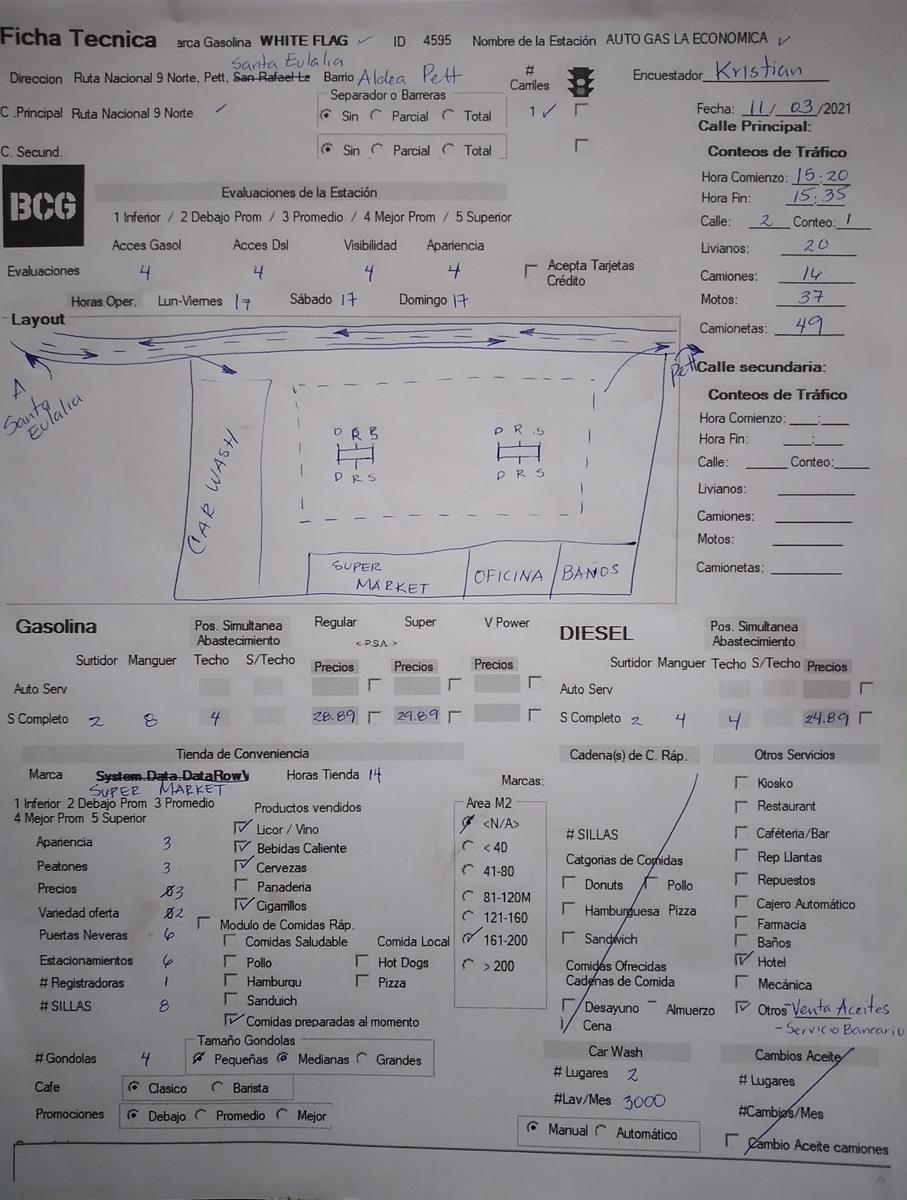 Ficha Tecnica arca Gasolina WHITE FLAG ID 4595 Nombre de la Estación AUTO GAS LA ECONOMICA
Santa Eulalia
Direccion Ruta Nacional 9 Norte, Pett, San Rafael Le Barrio Aldea Pett # Carriles Encuestador Kristian
Separador o Barreras
C .Principal Ruta Nacional 9 Norte Sin Parcial Total 1 Fecha: 11/ 03 /2021
Calle Principal:
C. Secund. Sin Parcial Total Conteos de Tráfico
BCG
Evaluaciones de la Estación
1 Inferior / 2 Debajo Prom / 3 Promedio / 4 Mejor Prom / 5 Superior
Acces Gasol Acces Dsl Visibilidad Apariencia
Evaluaciones 4 4 4 4 Acepta Tarjetas Crédito
Horas Oper. Lun-Viernes 17 Sábado 17 Domingo 17
Hora Comienzo: 15:20
Hora Fin: 15:35
Calle: 2 Conteo: 1
Livianos: 20
Camiones: 14
Motos: 37
Camionetas: 49
Layout
A Santa Eulalia
Pett
CAR WASH
D R S
D R S
D R S
D R S
SUPER MARKET OFICINA BAÑOS
Calle secundaria:
Conteos de Tráfico
Hora Comienzo: __:__
Hora Fin: __:__
Calle: ____ Conteo:____
Livianos:
Camiones:
Motos:
Camionetas:
Gasolina Pos. Simultanea Abastecimiento Regular Super V Power
< P.S.A. >
Surtidor Manguer Techo S/Techo Precios Precios Precios
Auto Serv
S Completo 2 8 4 28.89 29.89
DIESEL Pos. Simultanea Abastecimiento
Surtidor Manguer Techo S/Techo Precios
Auto Serv
S Completo 2 4 4 24.89
Tienda de Conveniencia
Marca System.Data.DataRowV Horas Tienda 14
SUPER MARKET
1 Inferior 2 Debajo Prom 3 Promedio
4 Mejor Prom 5 Superior
Apariencia 3
Peatones 3
Precios 3
Variedad oferta 2
Puertas Neveras 6
Estacionamientos 6
# Registradoras 1
# SILLAS 8
# Gondolas 4
Cafe Clasico Barista
Promociones Debajo Promedio Mejor
Productos vendidos
Licor / Vino
Bebidas Caliente
Cervezas
Panaderia
Cigarrillos
Modulo de Comidas Ráp.
Comidas Saludable Comida Local
Pollo Hot Dogs
Hamburqu Pizza
Sanduich
Comidas preparadas al momento
Tamaño Gondolas
Pequeñas Medianas Grandes
Marcas:
Area M2
<N/A>
< 40
41-80
81-120M
121-160
161-200
> 200
Cadena(s) de C. Ráp.
# SILLAS
Catgorias de Comidas
Donuts Pollo
Hamburguesa Pizza
Sandwich
Comidas Ofrecidas
Cadenas de Comida
Desayuno Almuerzo
Cena
Car Wash
# Lugares 2
#Lav/Mes 3000
Manual Automático
Otros Servicios
Kiosko
Restaurant
Caféteria/Bar
Rep Llantas
Repuestos
Cajero Automático
Farmacia
Baños
Hotel
Mecánica
Otros - Venta Aceites
- Servicio Bancario
Cambios Aceite
# Lugares
#Cambios/Mes
Cambio Aceite camiones